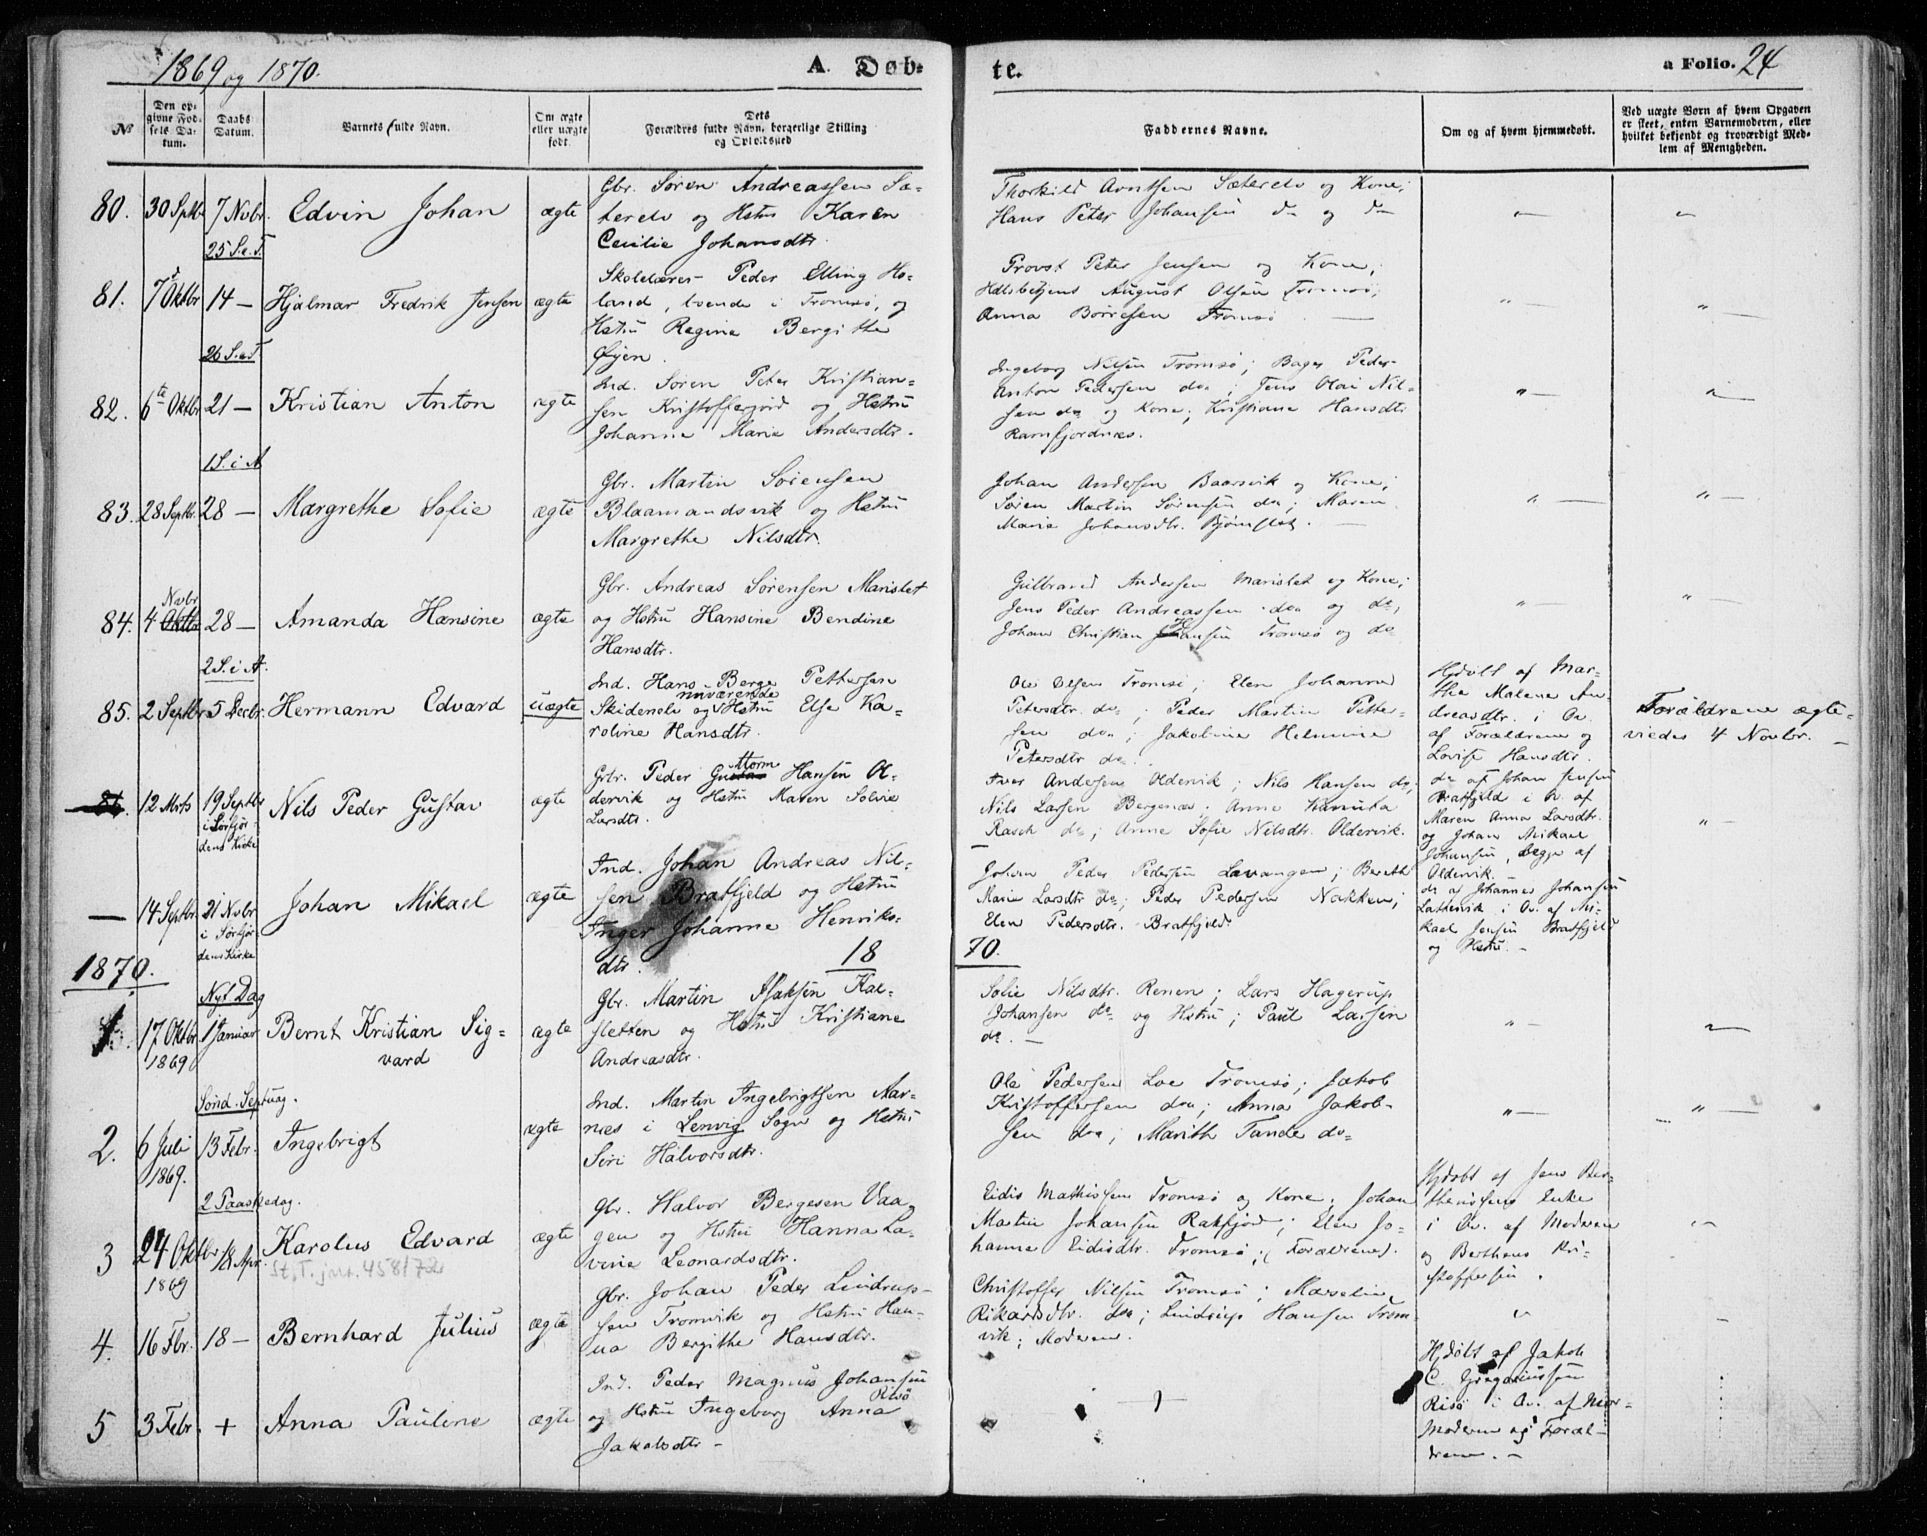 1869 og 1870.
A. Døb-
te.
a Folio. 24
No
Den op-
givne Fød-
sels Da-
tum.
Daabs
Datum.
Barnets fulde Navn.
Om ægte
eller uægte
født.
Dets
Forældres fulde Navn, borgerlige Stilling
og Opholdssted
Faddernes Navne.
Om og af hvem hjemmedøbt.
Ved uægte Børn af hvem Opgaven
er skeet, enten Barnemoderen, eller
hvilket bekjendt og troværdigt Med-
lem af Menigheden.
80.
30 Septbr
7 Novbr.
25 S. e. T.
Edvin Johan
ægte
Gbr. Søren Andreassen Sæ-
terelv og Hstru Karen
Cecilie Johansdtr.
Thorkild Arntsen Sæterelv og Kone;
Hans Peter Johansen do og do
81.
7 Oktbr
14 —
26 S.e.T.
Hjalmar Fredrik Jensen
ægte
Skolelærer Peder Elling Ho-
land, boende i Tromsø, og
Hstru Regine Bergithe
Øijen.
Provst Peter Jensen og Kone;
Hdlsbetjent August Olsen Tromsø;
Anna Børresen Tromsø —
82.
6te Oktbr
21 —
1 S. i A
Kristian Anton
ægte
Ind. Søren Peter Kristian-
sen Kristofferjord og Hstru
Johanne Marie Andersdtr.
Ingeborg Nilsen Tromsø; Bager Peder
Anton Pedersen do; Jens Olai Nil-
sen do og Kone; Kristiane Hansdtr
Ramfjordnæs.
83.
28 Septbr.
28 —
Margrethe Sofie
ægte
Gbr. Martin Sørensen
Blaamandsvik og Hstru
Margrethe Nilsdtr.
Johan Andersen Baarsvik og Kone;
Søren Martin Sørensen do; Maren
Marie Johansdtr.
84.
Novbr
4 Oktbr
28 —
2 S. i A.
Amanda Hansine
ægte
Gbr. Andreas Sørensen Maristet
og Hstru Hansine Bendine
Hansdtr.
Gulbrand Andersen Maristet og Kone;
Jens Peder Andreassen do og do,
Johan Christian Hansen Tromsø og do
85.
2 Septbr
5 Decbr.
Hermann Edvard
uægte
Ind. Hans Berge Pettersen
nuværende
Skidenelv og Hstru Else Ka-
roline Hansdtr.
Ole Olsen Tromsø; Elen Johanna
Petersdtr. do; Peder Martin Petter-
sen do; Jakobine Helmine
Petersdtr do.
Hdøbt af Mar-
tha Malene An-
dreasdtr. i Ov.
af Forældrene og
Lovise Hansdtr.
Forældrene ægte-
viedes 4 Novbr. —
86.
12 Mrts
19 Septbr
i Sørfjor-
dens Kirke
Nils Peder Gustav
ægte
Storm
Gbr. Peder Gustav Hansen Ol-
dervik og Hstru Maren Solvie
Larsdtr.
Iver Andersen Oldervik; Nils Hansen do,
Nils Larsen Bergenes; Anne Knuta
Rasch do; Anne Sofie Nilsdtr. Oldervik.
do af Johan Jensen
Bratfjeld i Ov. af
Maren Anna Larsdtr.
og Johan Mikael
Johansen, begge af
Oldervik. —
—
14 Septbr.
21 Novbr
i Sørfjor-
dens Kirke
Johan Mikael
ægte
Ind. Johan Andreas Nil-
sen Bratfjeld og Hstru
Inger Johanne Henriks-
dtr.
Johan Peder Pedersen Lavangen; Bereth
Marie Larsdtr do; Peder Pedersen Nakken;
Elen Pedersdtr. Bratfjeld.
do af Johannes Johansen
Lattervik i Ov. af Mi-
kael Jensen Bratfjeld
og Hstru. —
1870.
18
70.
1.
17 Oktbr.
1869
Nyt Dag
1 Januar
Bernt Kristian Sig-
vard
ægte
Gbr. Martin Isaksen Kal-
sletten og Hstru Kristiane
Andreasdtr.
Sofie Nilsdtr. Renen; Lars Hagerup
Johansen do og Hstru; Paul Larsen
do. —
2.
6 Juli
1869.
Sønd. Septuag.
13 Febr.
Ingebrigt
ægte
Ind. Martin Ingebrigtsen Aar-
næs i Lenvig Sogn og Hstru
Siri Halvorsdtr.
Ole Pedersen Loe Tromsø; Jakob
Kristoffersen do; Anna Jakob-
sen do; Marith Tande do
3
24 Oktbr
1869
2 Paaskedag.
18 Apr.
Karolus Edvard
St. T. jnr. 458/72
ægte
Gbr. Halvor Bergesen Vaa-
gen og Hstru Hanna La-
vine Leonardsdtr.
Eidis Mathissen Tromsø og Kone; Johan
Martin Johansen Rakfjord; Elen Jo-
hanna Eidisdtr. Tromsø; (Forældrene).
Hjdøbt af Jens Ber-
thensens Enke
i Ov. af Moderen
og Berthens Kri-
stoffersen.
4.
16 Fbr.
18 —
Bernhard Julius
ægte
Gbr. Johan Peder Lindrup-
sen Tromvik og Hstru Han-
na Bergithe Hansdtr.
Christoffer Nilsen Tromsø; Marselie
Rikardsdtr. do; Lindrup Hansen Trom-
vik; Moderen.
5
3 Febr.
+
Anna Pauline
ægte
Ind. Peder Magnus Johansen
Risø
og Hstru Ingeborg Anna
Jakobsdtr —
Hjdøbt af Jakob
C. Gregoriussen
Risø i Ov. af Mor-
moderen og Foræl-
drene. —